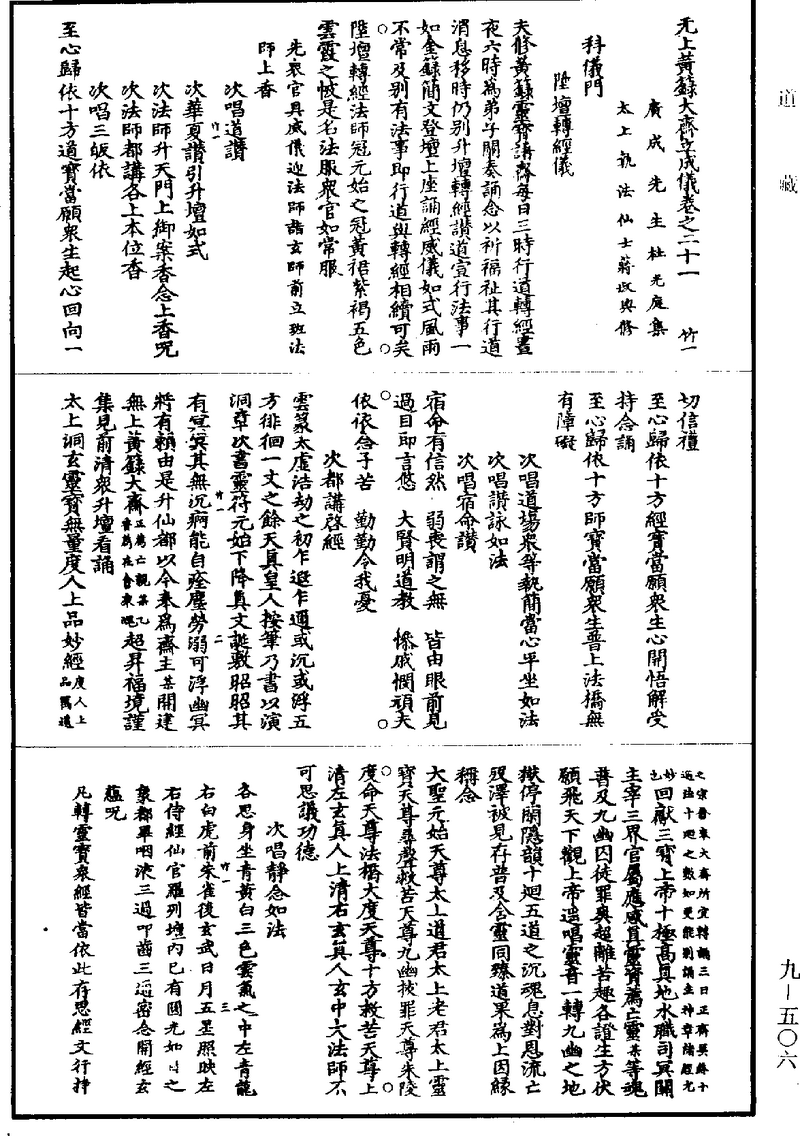 道藏
无上黃籙大齋立成儀卷之二十一 竹一
廣成先生杜光庭集
太上執法仙士蔣叔輿修
科儀門
陞壇轉經儀
夫修黃籙靈寶講齋每日三時行道轉經晝
夜六時為弟子關奏誦念以祈福祉其行道
消息移時仍別升壇轉經讚道宣行法事一
如金籙簡文登壇上座誦經威儀如式風雨
不常及別有法事即行道與轉經相續可矣
陞壇轉經法師冠元始之冠黃裙紫褐五色
雲霞之帔是名法服衆官如常服
先衆官具威儀迎法師詣玄師前立班法
師上香
次唱道讚
次華夏讚引升壇如式
次法師升天門上御案香念上香呪
次法師都講各上本位香
次唱三皈依
至心歸依十方道寶當願衆生起心回向一
切信禮
至心歸依十方經寶當願衆生心開悟解受
持念誦
至心歸依十方師寶當願衆生普上法橋無
有障礙
次唱道場衆等執簡當心平坐如法
次唱讚詠如法
次唱宿命讚
宿命有信然 弱喪謂之無 皆由眼前見
過目即言悠 大賢明道教 慘戚憫頑夫
依依念子苦 勤勤令我憂
次都講啓經
雲篆太虛浩劫之初乍遐乍邇或沉或浮五
方徘徊一丈之餘天真皇人按筆乃書以演
洞章次書靈符元始下降真文誕敷昭昭其
有冥冥其無沉痾能自痊塵勞溺可浮幽冥
將有賴由是升仙都以今奉為齋主某開建
無上黃籙大齋正薦亡親某乙齋薦在會衆魂超昇福境謹
集見前清衆升壇看誦
太上洞玄靈寶無量度人上品妙經度人上品萬道
之宗普東大齋所宜轉誦三日正齋異錄十
過法十迴之數如更能別誦生神章諸經尤
妙也回獻三寶上帝十極高真地水職司冥關
主宰三界官屬應感真靈資薦亡靈某等魂
普及九幽囚徒罪爽超離苦趣各證生方伏
願飛天下觀上帝遥唱靈音一轉九幽之地
獄停關隱韻十迴五道之沉魂息對恩流亡
歿澤被見存普及含靈同臻道果為上因緣
稱念
大聖元始天尊太上道君太上老君太上靈
寶天尊尋聲救苦天尊九幽拔罪天尊朱陵
度命天尊法橋大度天尊十方救苦天尊上
清左玄真人上清右玄真人玄中大法師不
可思議功德
次唱靜念如法
各思身坐青黃白三色雲氣之中左青龍
右白虎前朱雀後玄武日月五星照映左
右侍經仙官羅列壇內已有圓光如日之
象都畢咽液三過叩齒三通密念開經玄
蘊呪
凡轉靈寶衆經皆當依此存思經文行持
九－五〇六